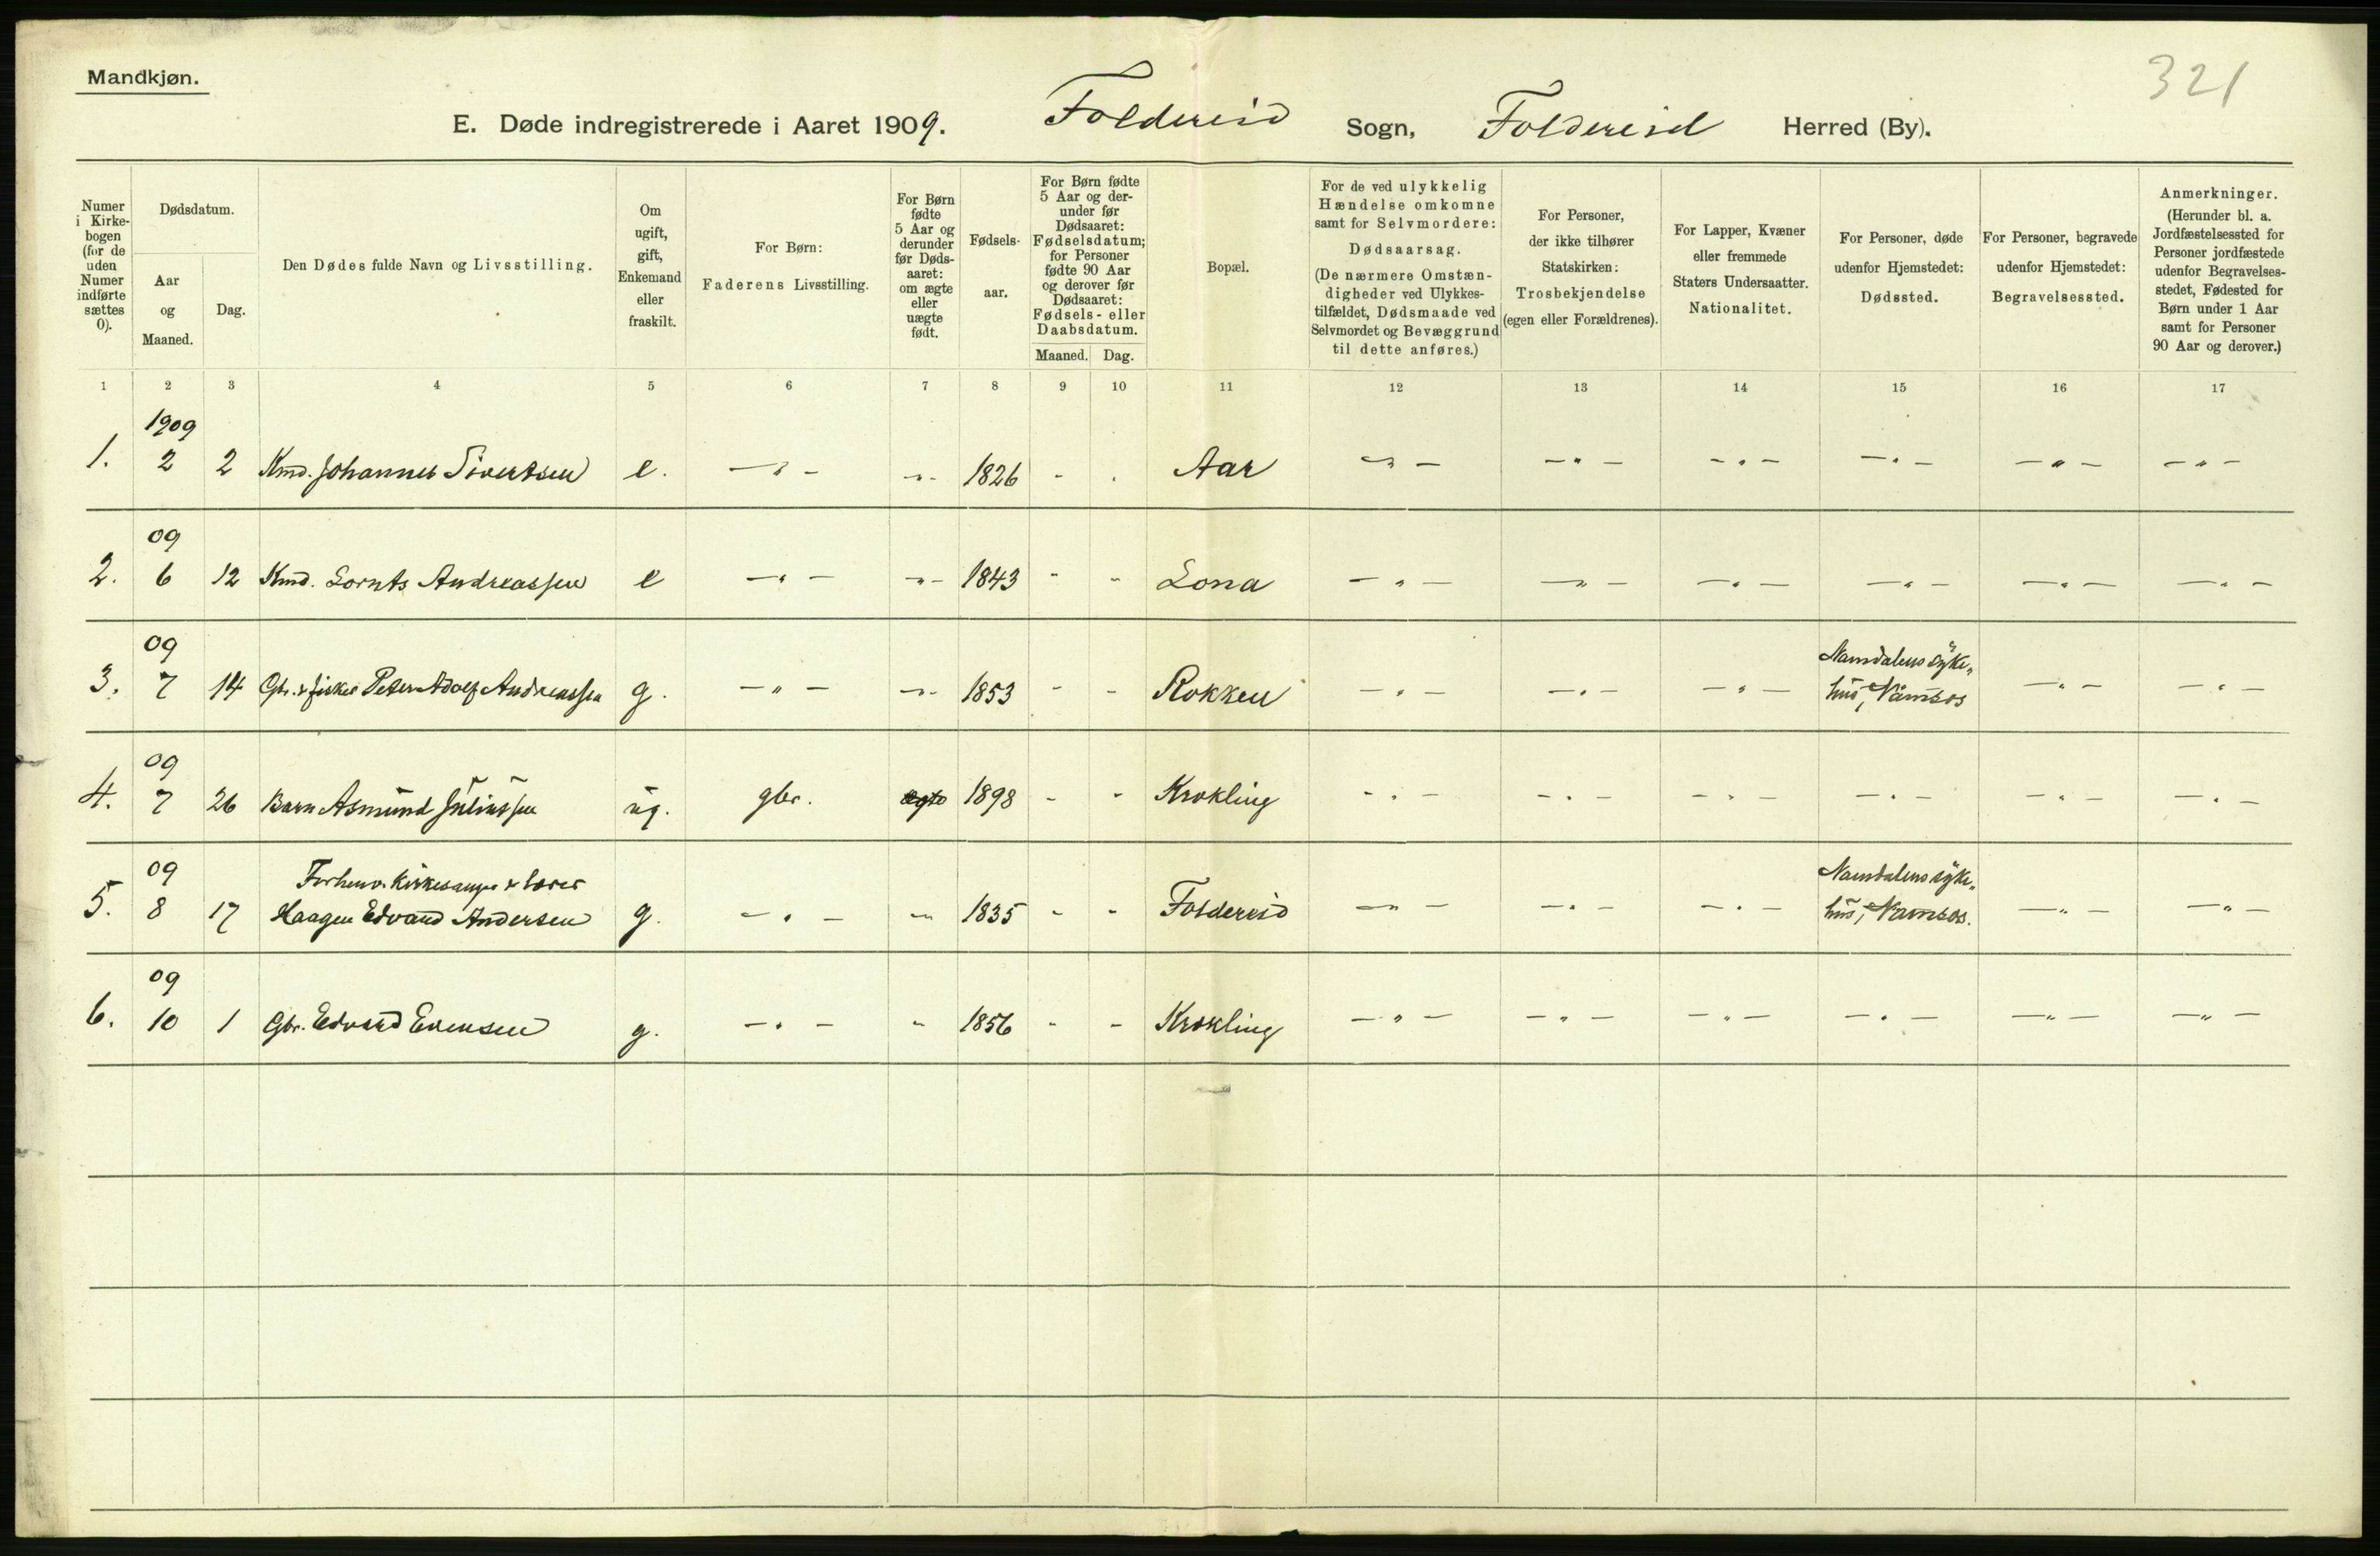 Mandkjøn.
321
E. Døde indregistrerede i Aaret 1909. Foldereid Sogn, Foldereid Herred (By).
Numer i Kirkebogen (for de uden Numer indførte sættes 0).
Dødsdatum.
Aar og Maaned.
Dag.
Den Dødes fulde Navn og Livsstilling.
Om ugift, gift, Enkemand eller fraskilt.
For Børn: Faderens Livsstilling.
For Børn fødte 5 Aar og derunder før Dødsaaret: om ægte eller uægte født.
Fødselsaar.
For Børn fødte 5 Aar og derunder før Dødsaaret: Fødselsdatum; for Personer fødte 90 Aar og derover før Dødsaaret: Fødsels- eller Daabsdatum.
Maaned. Dag.
Bopæl.
For de ved ulykkelig Hændelse omkomne samt for Selvmordere: Dødsaarsag. (De nærmere Omstændigheder ved Ulykkestilfældet, Dødsmaade ved Selvmordet og Bevæggrund til dette anføres.)
For Personer, der ikke tilhører Statskirken: Trosbekjendelse (egen eller Forældrenes).
For Lapper, Kvæner eller fremmede Staters Undersaatter. Nationalitet.
For Personer, døde udenfor Hjemstedet: Dødssted.
For Personer, begravede udenfor Hjemstedet: Begravelsessted.
Anmerkninger. (Herunder bl. a. Jordfæstelsessted for Personer jordfæstede udenfor Begravelsesstedet, Fødested for Børn under 1 Aar samt for Personer 90 Aar og derover.)
1 2 3 4 5 6 7 8 9 10 11 12 13 14 15 16 17
1909
1. 2 2 Kmd. Johannes Sivertsen e. - " - - " - 1826 - - Aar - " - - " - - " - - " - - " - - " -
09
2. 6 12 Kmd. Lornts Andreassen e - " - - " - 1843 - - Lona - " - - " - - " - - " - - " - - " -
09 Namdalens syke-
3. 7 14 Gbr. & fisker Peter Adolf Andreassen g. - " - - " - 1853 - - Rokken - " - - " - - " - hus, Namsos - " - - " -
09
4. 7 26 Barn Asmund Juliussen ug. gbr. ægte 1898 - - Krokling - " - - " - - " - - " - - " - - " -
09 Forhenv. Kirkesanger & lærer Namdalens syke-
5. 8 17 Haagen Edvard Andersen g. - " - - " - 1835 - - Foldereid - " - - " - - " - hus, Namsos. - " - - " -
09
6. 10 1 Gbr. Edvard Evensen g. - " - " 1856 - - Krokling - " - - " - - " - - " - - " - - " -